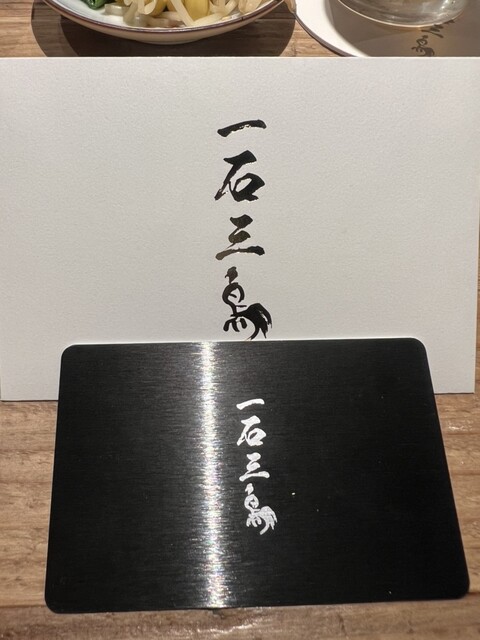 一石三鳥
一石三鳥